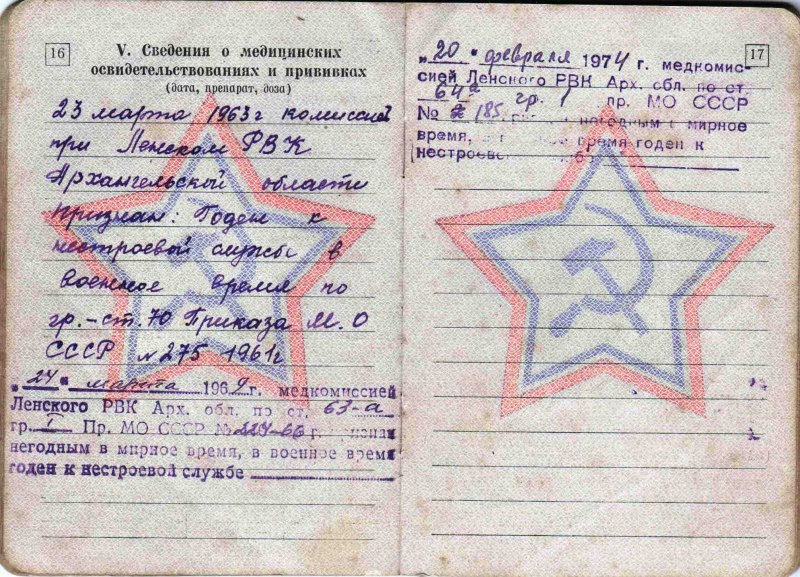 16
V. Сведения о медицинских
освидетельствованиях и прививках
(дата, препарат, доза)
23 марта 1963г комиссией
при Ленском РВК
Архангельской области
Признан: Годен к
нестроевой службы в
военное время по
гр.-ст. 70 Приказа М.О
СССР №275 1961г
"24" марта 1969г. медкомиссией
Ленского РВК Арх. обл. по ст. 63-а
гр. I Пр. МО СССР №
негодным в мирное время, в военное время
годен к нестроевой службе
17
"20" февраля 1974 г. медкомис-
сией Ленского РВК Арх. обл. по ст.
64а гр. 1 пр. МО СССР
№ 185 негодным в мирное
время, время годен к